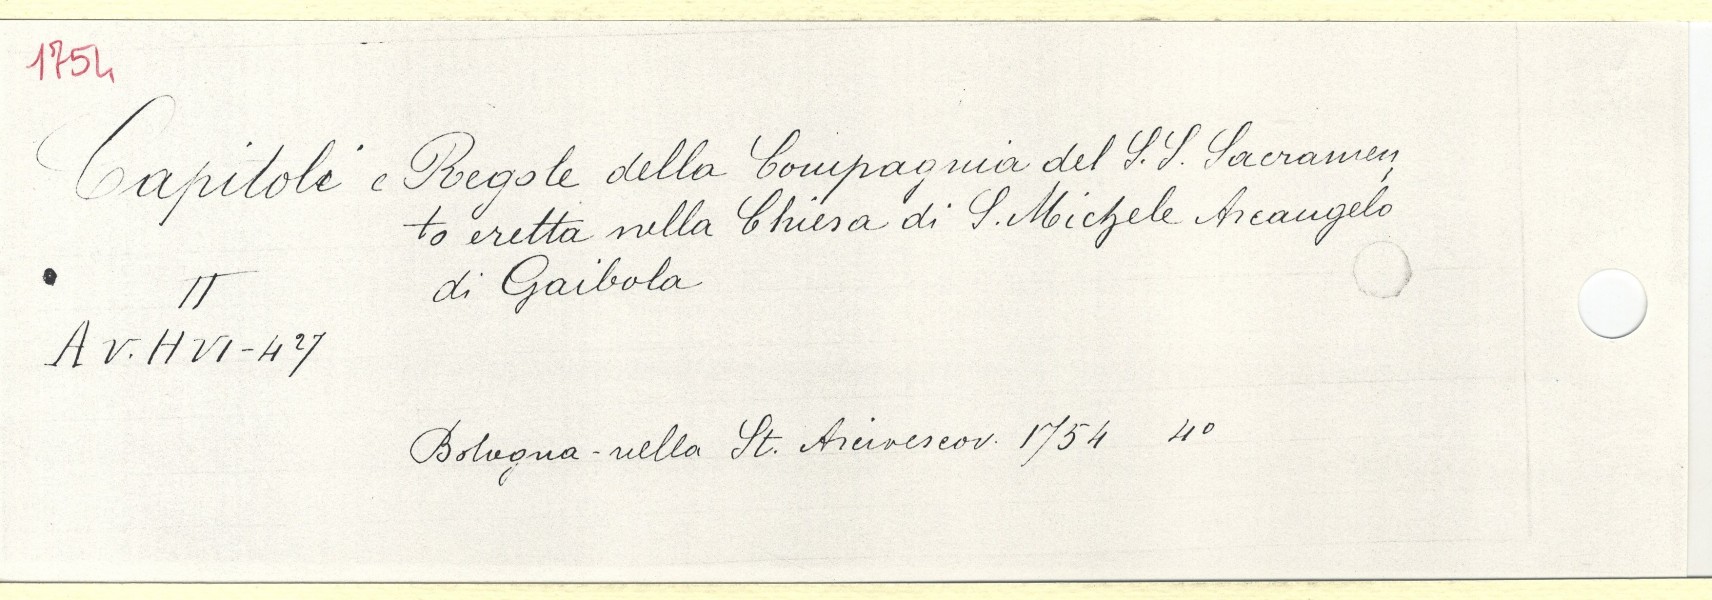 1754
Capitoli e Regole della Compagnia del S.S. Sacramen,
to eretta nella Chiesa di S. Michele Arcangelo
di Gaibola
II
A V. H VI-427
Bologna - nella St. Arcivescov. 1754 4º